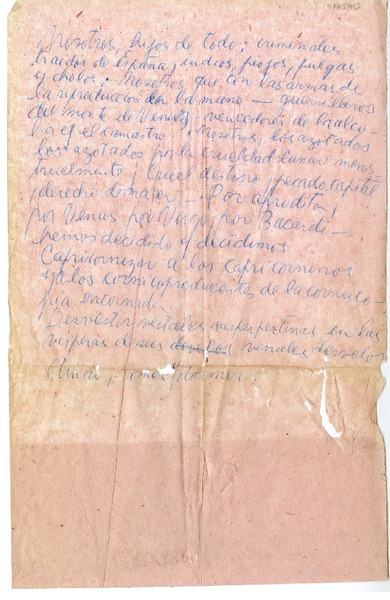 Nosotros, hijos de todo; criminales
traidos de españa, indios, piojos, pulgas
y cholos. Nosotros que con las armas de
la reproduccion en la mano — guerrilleros
del monte de Venus — vencedores de la alco-
ba y el camastro. Nosotros, los azotados
los azotados por la crueldad lunar mens
truelmente, cruel destino, pecado capital
derecho de nacer — Por afrodita!
por Venus por Virgo, por Bacardi —
hemos decidido y decidimos
Capricornizar a los capricorninos
y a los cornicoproducentes de la cornuco
pia encarnada.
Desvestir vestales vespertinas en las
visperas de sus venales desvelos